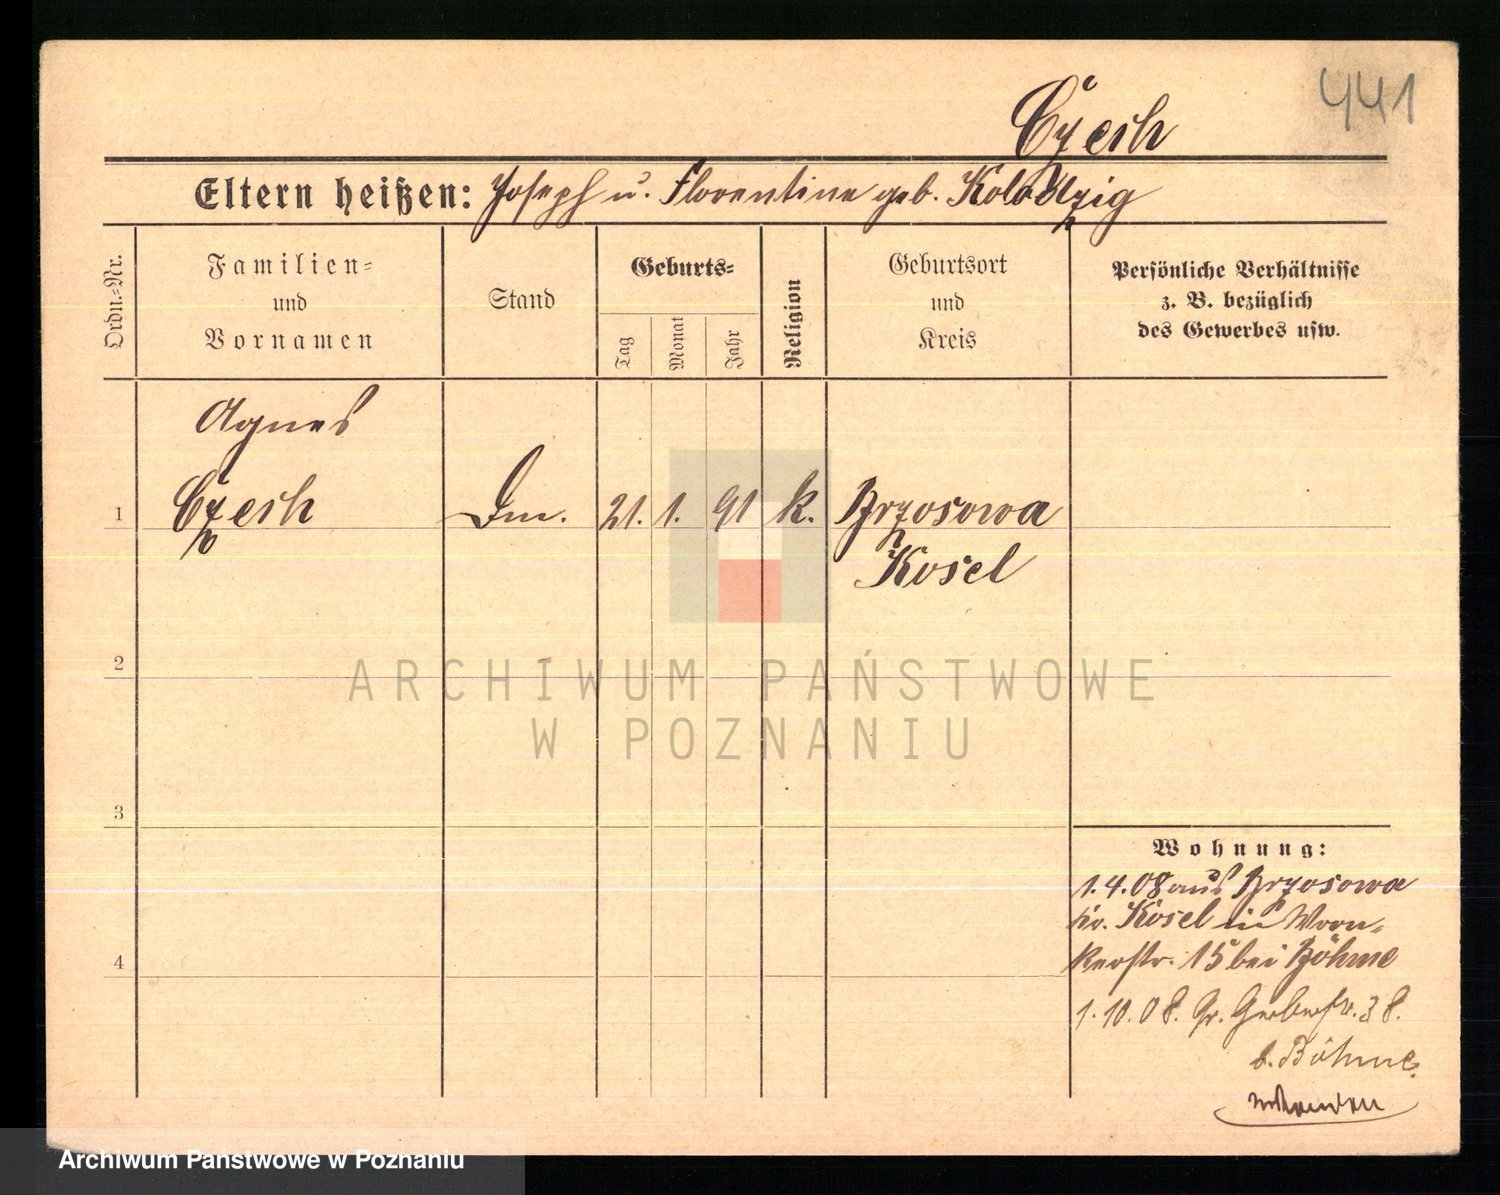 441
Czech
Eltern heißen: Joseph u. Florentine geb. Kolodzig
Ordn.-Nr.
Familien-
und
Vornamen
Stand
Geburts-
Tag
Monat
Jahr
Religion
Geburtsort
und
Kreis
Persönliche Verhältnisse
z. B. bezüglich
des Gewerbes usw.
Agnes
1 Czech 21. 1. 91 k. Brzosowa
Kosel
2
ARCHIWUM PAŃSTWOWE
W POZNANIU
3
Wohnung:
1.4.08 aus Brzosowa
Kr. Kosel in
15 bei Böhme
4
1.10.08. Gr. Gerberstr. 38.
b. Böhme.
Archiwum Państwowe w Poznaniu